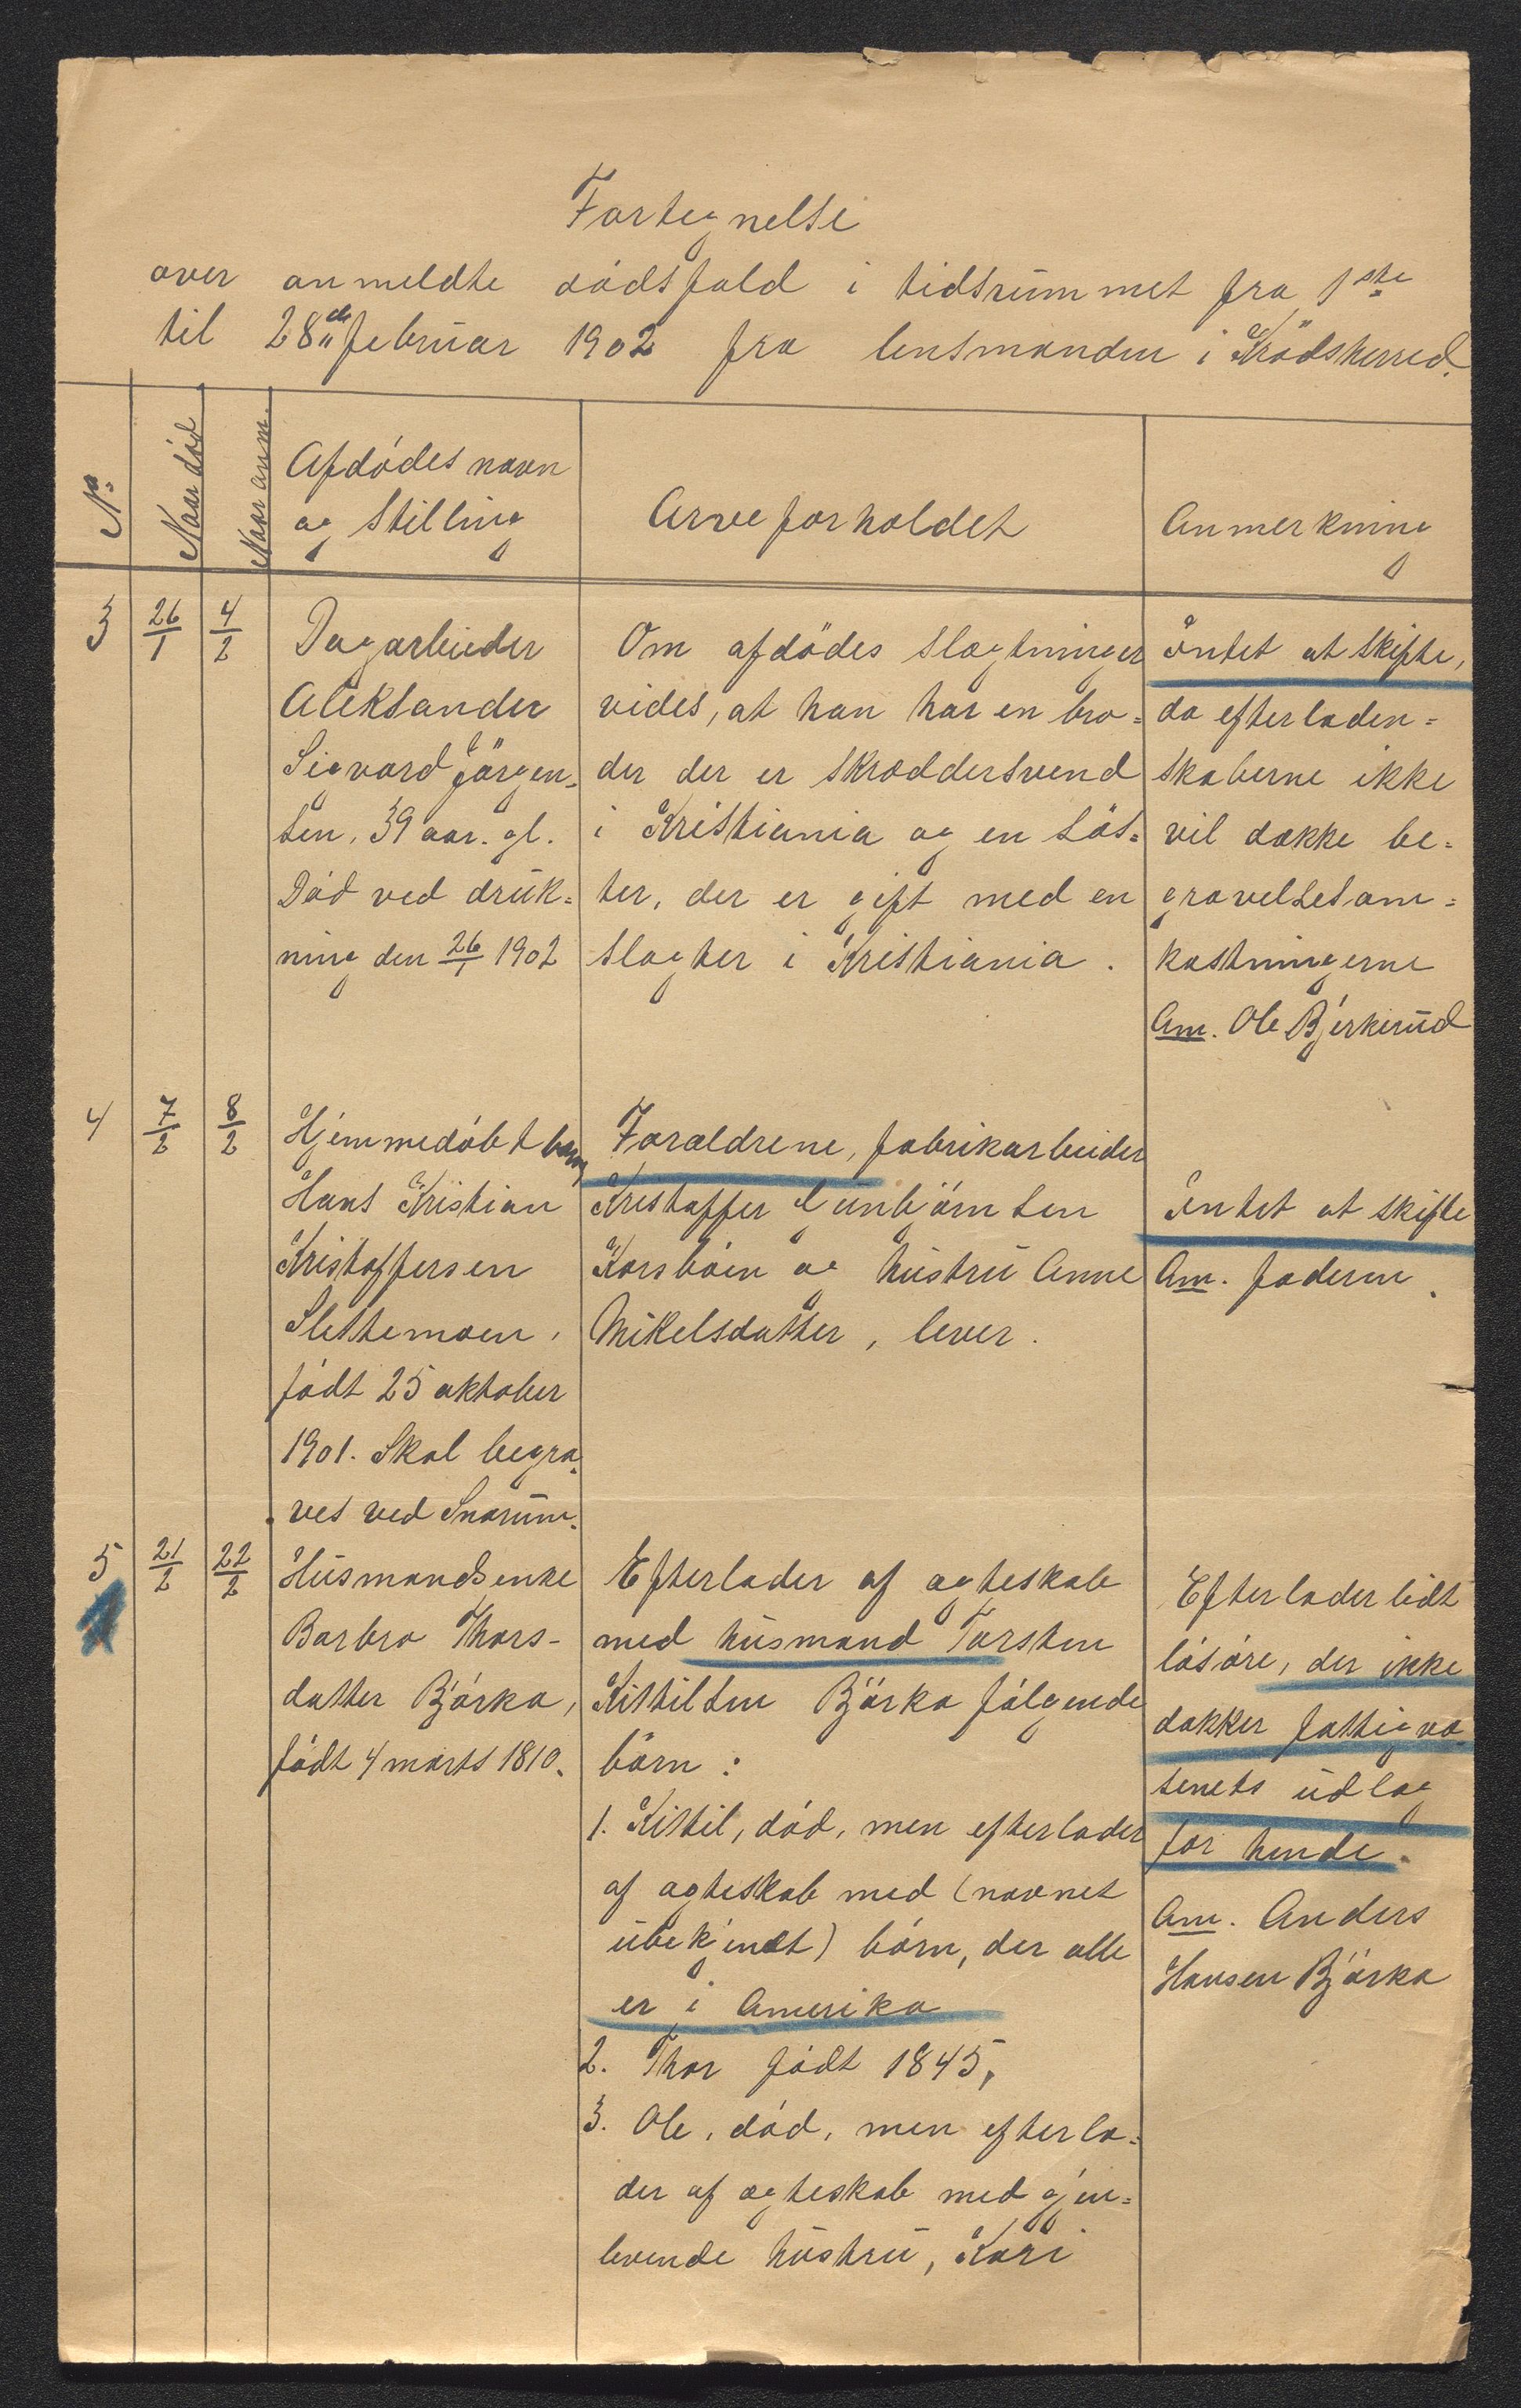 Fortegnelse
over anmeldte dødsfald i tidsrummet fra 1ste
til 28de februar 1902 fra lensmanden i Krødsherred.
No
Naar död
Naar anm.
Afdødes navn
og Stilling
Arveforholdet
Anmerkning
3
26/1
4/2
Dagarbeider
Aleksander
Sigvard Jörgen-
sen, 39 aar. gl.
Död ved druk=
ning den 26/1 1902
Om afdødes slægtninger
vides, at han har en bro=
der der er skræddersvend
i Kristiania og en søs=
ter, der er gift med en
slagter i Kristiania.
Intet at skifte,
da efterladen=
skaberne ikke
vil dække be=
gravelsesom=
kostningerne
Am. Ole Bjerkerud
4
7/2
8/2
Hjemmedøbt barn
Hans Kristian
Kristoffersen
Slettemoen,
født 25 oktober
1901. Skal begra-
ves ved Snarum.
Forældrene, fabrikarbeider
Kristoffer Gunbjørnsen
Korsbøen og hustru Anne
Mikelsdatter, lever.
Intet at skifte
Am. faderen.
5
21/2
22/2
Husmandsenke
Barbro Thors-
datter Bjørka,
født 4 marts 1810.
Efterlader af ægteskab
med husmand Torsten
Kittilsen Bjørka følgende
børn:
1. Kittil, død, men efterlader
af ægteskab med (navnet
ubekjendt) børn, der alle
er i Amerika
2. Thor født 1845,
3. Ole, død, men efterla=
der af ægteskab med gjen=
levende hustru, Kari
Efterlader lidt
løsøre, der ikke
dækker fattigvæ-
senets udlæg
for hende.
Am. Anders
Hansen Bjørka